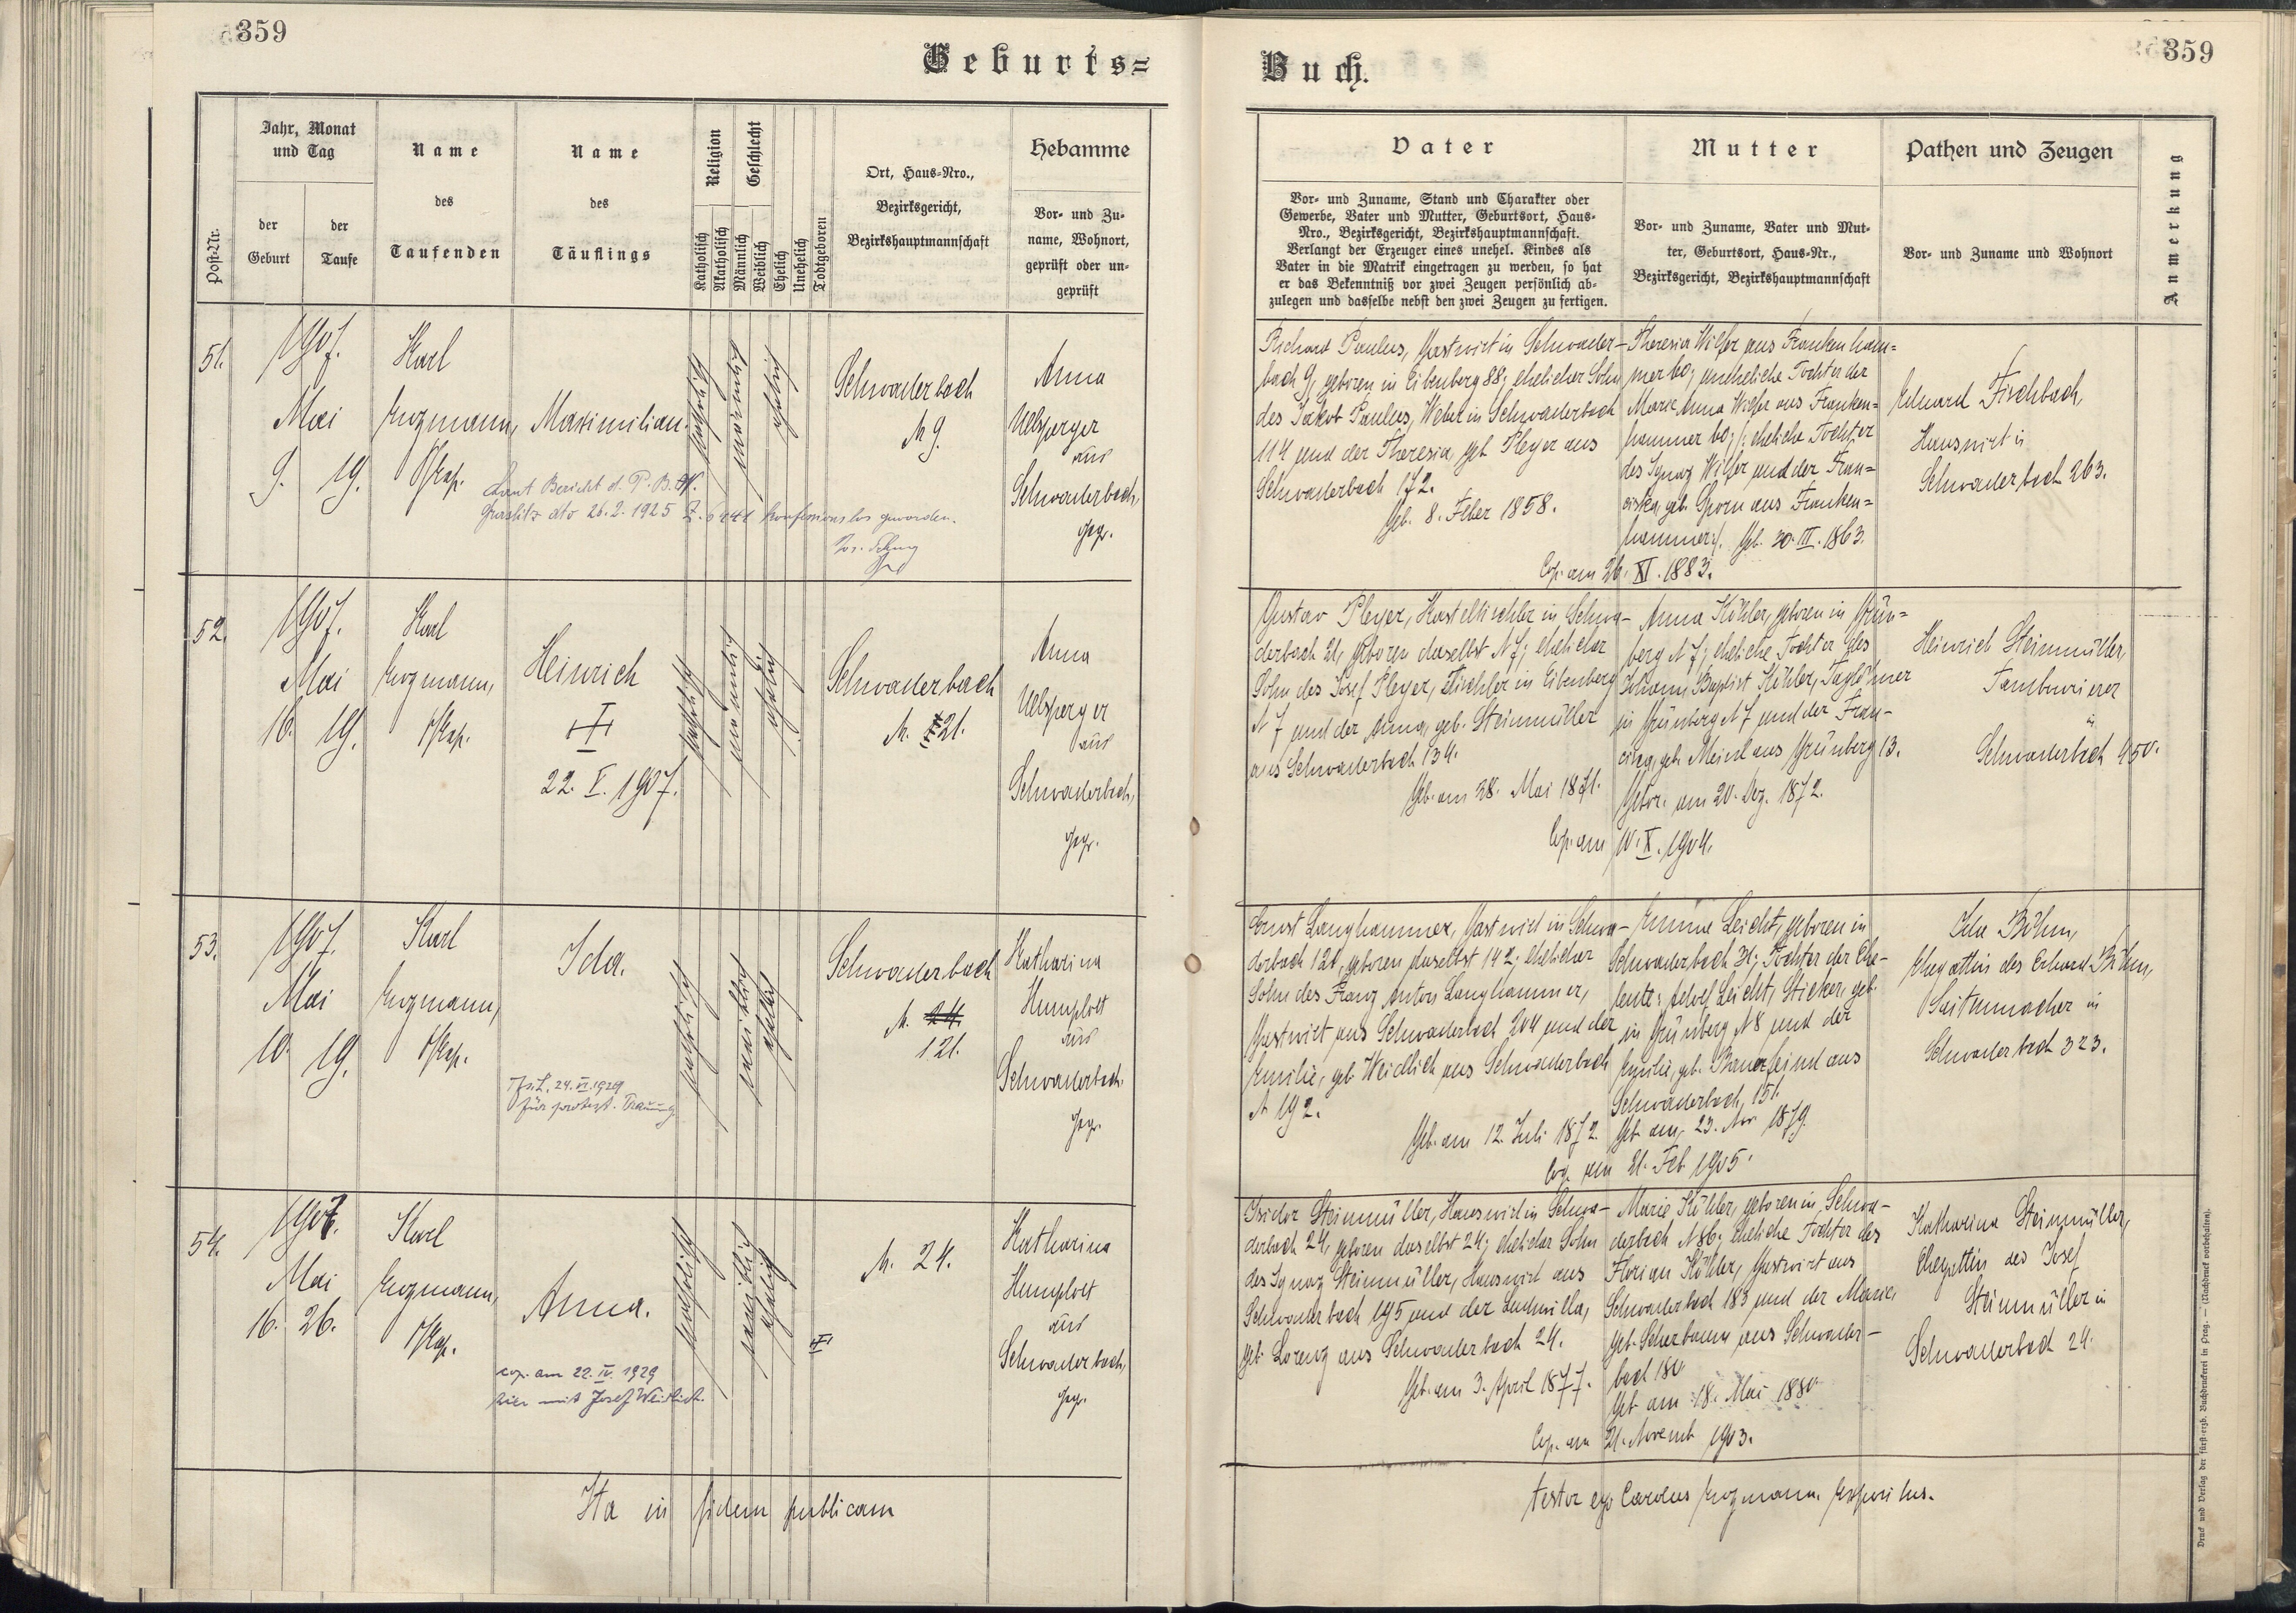 359
Geburts=
Jahr, Monat und Tag
Name
Name
Religion
Geschlecht
Ort, Haus-Nro.,
Bezirksgericht,
Bezirkshauptmannschaft
Hebamme
Post-Nr.
der Geburt
der Taufe
des
Taufenden
des
Täuflings
Katholisch
Akatholisch
Männlich
Weiblich
Ehelich
Unehelich
Todtgeboren
Vor- und Zu-
name, Wohnort,
geprüft oder un-
geprüft
51.
1907.
Mai
9. 19.
Karl
Maximilian.
katholisch
männlich
ehelich
Schwaderbach
N 9.
Anna
aus
Schwaderbach,
gepr.
Laut Bericht d. P. B. H.
Graslitz dto 26.2.1925 Z. konfessionslos geworden.
52.
1907.
Mai
10. 19.
Karl
Heinrich
22. V. 1907.
katholisch
männlich
ehelich
Schwaderbach
N. 21.
Anna
aus
Schwaderbach,
gepr.
53.
1907.
Mai
10. 19.
Karl
Ida.
24. VI. 1929
für protest. Trauung
katholisch
weiblich
ehelich
Schwaderbach
N. 24.
121.
Katharina
Humplett
aus
Schwaderbach,
gepr.
54.
1907.
Mai
16. 26.
Karl
Anna.
cop. am 22. IV. 1929
hier mit Josef Weidlich.
katholisch
weiblich
ehelich
N. 24.
Katharina
Humplett
aus
Schwaderbach,
gepr.
Ita in fidem publicam
359
Buch.
Vater
Mutter
Pathen und Zeugen
Anmerkung
Vor- und Zuname, Stand und Charakter oder
Gewerbe, Vater und Mutter, Geburtsort, Haus-
Nro., Bezirksgericht, Bezirkshauptmannschaft.
Verlangt der Erzeuger eines unehel. Kindes als
Vater in die Matrik eingetragen zu werden, so hat
er das Bekenntniß vor zwei Zeugen persönlich ab-
zulegen und dasselbe nebst den zwei Zeugen zu fertigen.
Vor- und Zuname, Vater und Mut-
ter, Geburtsort, Haus-Nr.,
Bezirksgericht, Bezirkshauptmannschaft
Vor- und Zuname und Wohnort
Richard Paulus, Gastwirt in Schwader-
bach 9, geboren in Eibenberg 88; ehelicher Sohn
des Jakob Paulus, Weber in Schwaderbach
114 und der Theresia, geb. Pleyer aus
Schwaderbach 172.
Geb. 8. Feber 1858.
Theresia Wilfer aus Frankenham=
mer 60; uneheliche Tochter der
Marie Anna Wilfer aus Franken=
hammer 60; /: eheliche Tochter
des Ignaz Wilfer und der Fran=
ciska, geb. Gporn aus Franken=
hammer:/. Geb. 30. III. 1863.
Cop. am 26. XI. 1883.
Eduard Fischbach,
Hauswirt in
Schwaderbach 263.
Gustav Pleyer, Kastentischler in Schwa-
derbach 21, geboren daselbst N 7; ehelicher
Sohn des Josef Pleyer, Tischler in Eibenberg
N 7 und der Anna, geb. Steinmüller
aus Schwaderbach 134.
Geb. am 28. Mai 1871.
Anna Köhler, geboren in Grün=
berg N 7; eheliche Tochter des
Johann Baptist Köhler, Taglöhner
in Grünberg N 7 und der Fran-
ciska, geb. Meinl aus Grünberg 13.
Gebor. am 20. Dez. 1872.
Cop. am 10. X. 1904.
Heinrich Steinmüller,
Tambourierer
in
Schwaderbach 450.
Ernst Langhammer, Gastwirt in Schwa-
derbach 121, geboren daselbst 142; ehelicher
Sohn des Franz Anton Langhammer,
Gastwirt aus Schwaderbach 204 und der
Emilie, geb. Weidlich aus Schwaderbach
N 192.
Geb. am 12. Juli 1872.
Leicht, geboren in
Schwaderbach 31; Tochter der Ehe-
leute: Adolf Leicht, Sticker, geb.
in Grünberg N 8 und der
Emilie, geb. Bauerfeind aus
Schwaderbach 151.
Geb. am 23. Nov 1879.
Cop. am 21. Feb. 1905.
Ida Böhm,
Ehegattin des Eduard Böhm,
Saitenmacher in
Schwaderbach 323.
Isidor Steinmüller, Hauswirt in Schwa-
derbach 24, geboren daselbst 24; ehelicher Sohn
des Ignaz Steinmüller, Hauswirt aus
Schwaderbach 195 und der Ludmilla,
geb. Lorenz aus Schwaderbach 24.
Geb. am 3. April 1877.
Marie Köhler, geboren in Schwa-
derbach N 86; eheliche Tochter des
Florian Köhler, Gastwirt aus
Schwaderbach 183 und der Marie,
geb. Scherbaum aus Schwader-
bach 180.
Geb. am 18. Mai 1880.
Cop. am 21. Novemb. 1903.
Katharina Steinmüller,
Ehegattin des Josef
Steinmüller in
Schwaderbach 24.
testor ego Carolus Expositus.
Druck und Verlag der fürst-erzb. Buchdruckerei in Prag. — (Nachdruck vorbehalten).